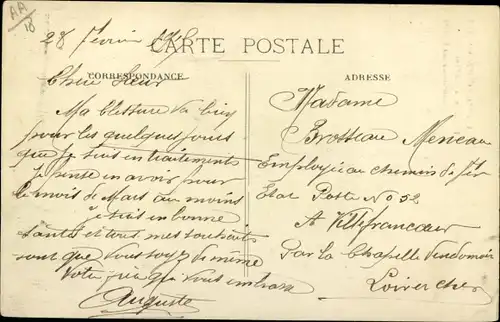 AA
18
28 fevrier
CARTE POSTALE
CORRESPONDANCE
ADRESSE
Chere Sœur
Ma blessure va bien
pour les quelques jours
que je suis en traitements
je pense en avoir pour
le mois de Mars au moins
je suis en bonne
santé et tout mes souhaits
sont que vous soyez de meme
Votre qui vous embrasse
Auguste
Madame
Brosseau Meneau
Employé au chemin de fer
Etat Poste No 52
A Villefrancoeur
Par la Chapelle Vendomoise
Loir et cher